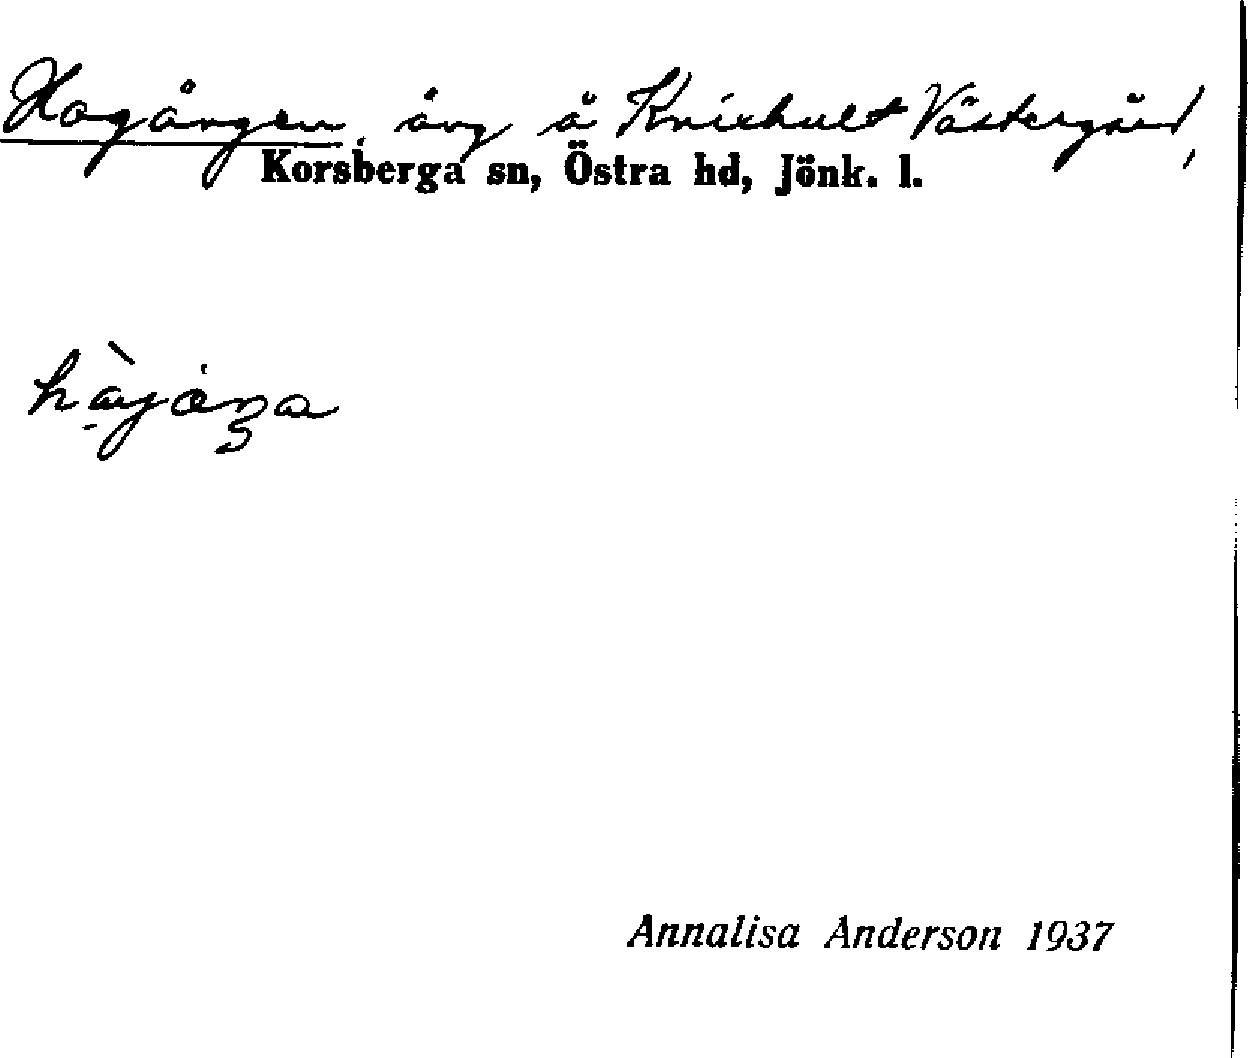 Hagängen, äng å Knixhult Västergård,
Korsberga sn, Östra hd, Jönk. l.
Annalisa Anderson 1937